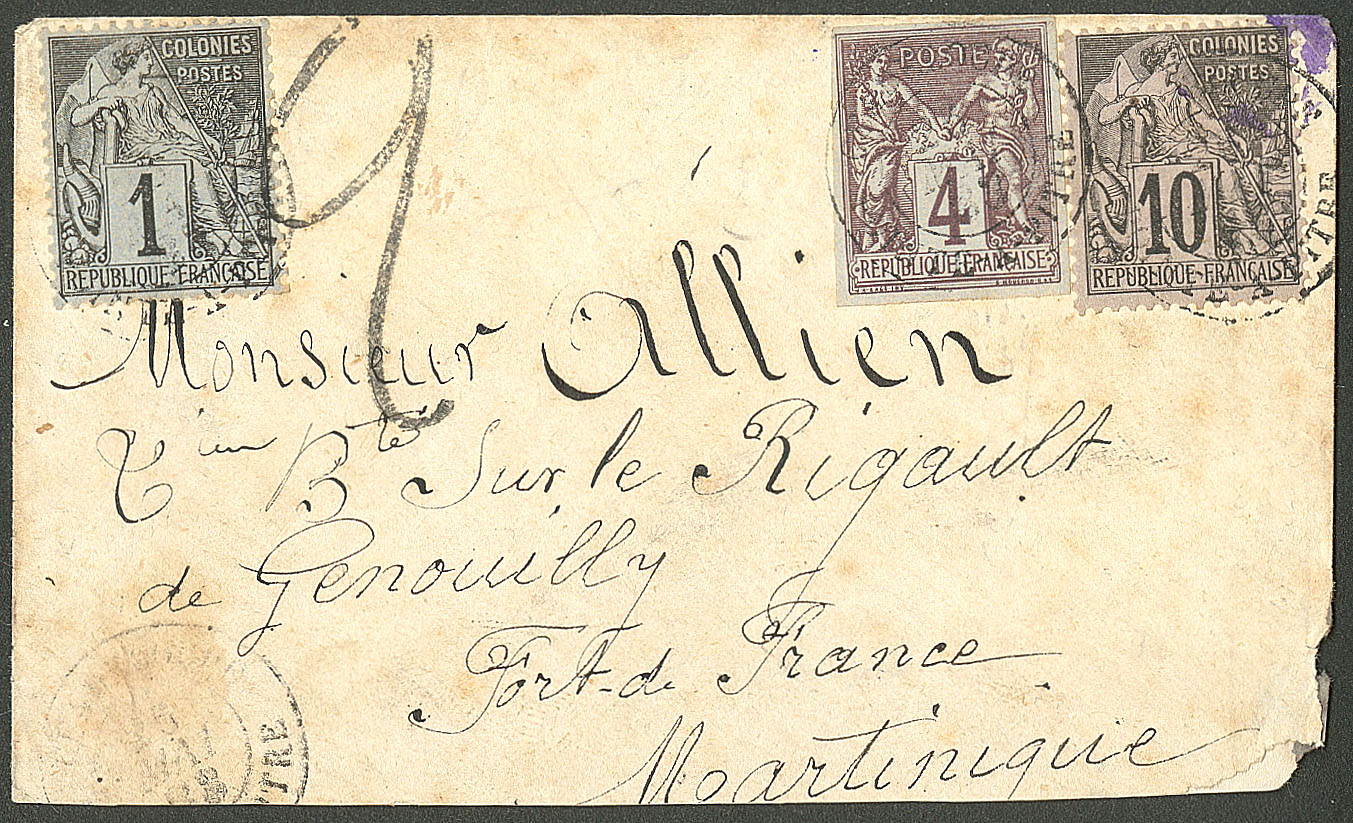 COLONIES
POSTES
1
REPUBLIQUE FRANÇAISE
POSTE
4
REPUBLIQUE FRANÇAISE
COLONIES
POSTES
10
REPUBLIQUE FRANÇAISE
ITRE
ITRE
Monsieur Allien
Bté Sur le Rigault
de Genouilly
Fort-de France
Martinique
TRE